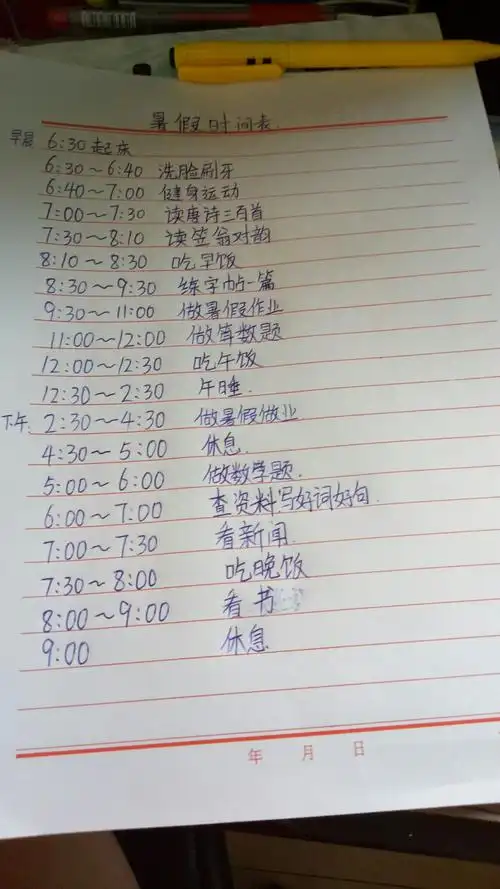 暑假时间表.
早晨 6:30 起床
6:30～6:40 洗脸刷牙
6:40～7:00 健身运动
7:00～7:30 读唐诗三百首
7:30～8:10 读笠翁对韵
8:10～8:30 吃早饭
8:30～9:30 练字帖一篇
9:30～11:00 做暑假作业
11:00～12:00 做算数题
12:00～12:30 吃午饭
12:30～2:30 午睡.
下午: 2:30～4:30 做暑假做业
4:30～5:00 休息.
5:00～6:00 做数学题.
6:00～7:00 查资料写好词好句.
7:00～7:30 看新闻.
7:30～8:00 吃晚饭
8:00～9:00 看书
9:00 休息
年 月 日